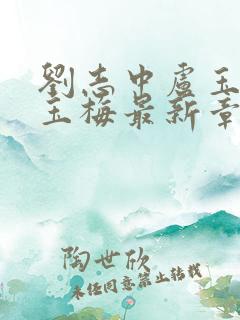 劉志中盧玉
玉梅最新章
陶世欣
未经同意禁止转载